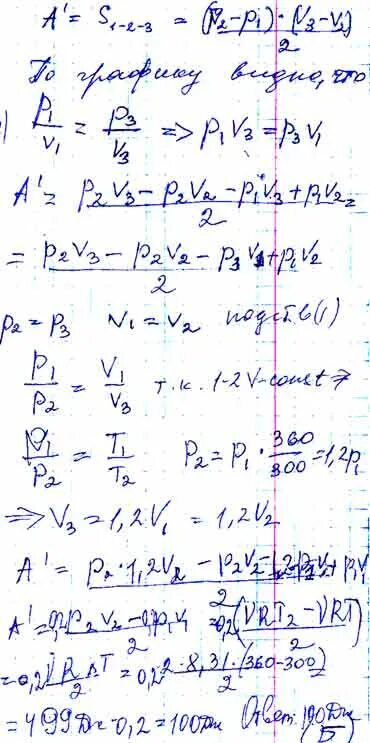 A' = S₁₋₂₋₃ = (p₂-p₁)·(V₃-V₂)/2
По графику видно, что
) p₁/V₁ = p₃/V₃ => p₁V₃ = p₃V₁
A' = (p₂V₃ - p₂V₂ - p₁V₃ + p₁V₂)/2 =
= (p₂V₃ - p₂V₂ - p₃V₁ + p₁V₂)/2
p₂ = p₃ V₁ = V₂ подст. в (1)
p₁/p₂ = V₁/V₃ т.к. 1-2 V-const =>
p₁/p₂ = T₁/T₂ P₂ = P₁·360/300 = 1,2p₁
=> V₃ = 1,2V₁ = 1,2V₂
A' = (p₂·1,2V₂ - p₂V₂ - 1,2p₁V₁ + p₁V₁)/2
A' = (0,2p₂V₂ - 0,2p₁V₁)/2 = 0,2(νRT₂ - νRT)/2
= 0,2 νRΔT/2 = 0,2 2·8,31·(360-300)/2
= 499Дж·0,2 = 100Дж Ответ: 100Дж